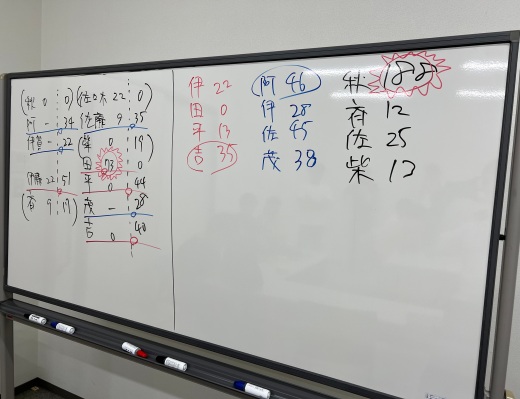 (秋 0 0)
阿 - 34
伊音 - 22
伊藤 22 51
(斉 9 19)
佐々木 22 0)
佐藤 9 35
(柴 0 19)
田 73 0
平 0 44
茂 - 28
吉 0 40
伊 22
田 0
平 13
吉 35
阿 46
伊 28
佐 45
茂 38
秋 188
斉 12
佐 25
柴 13